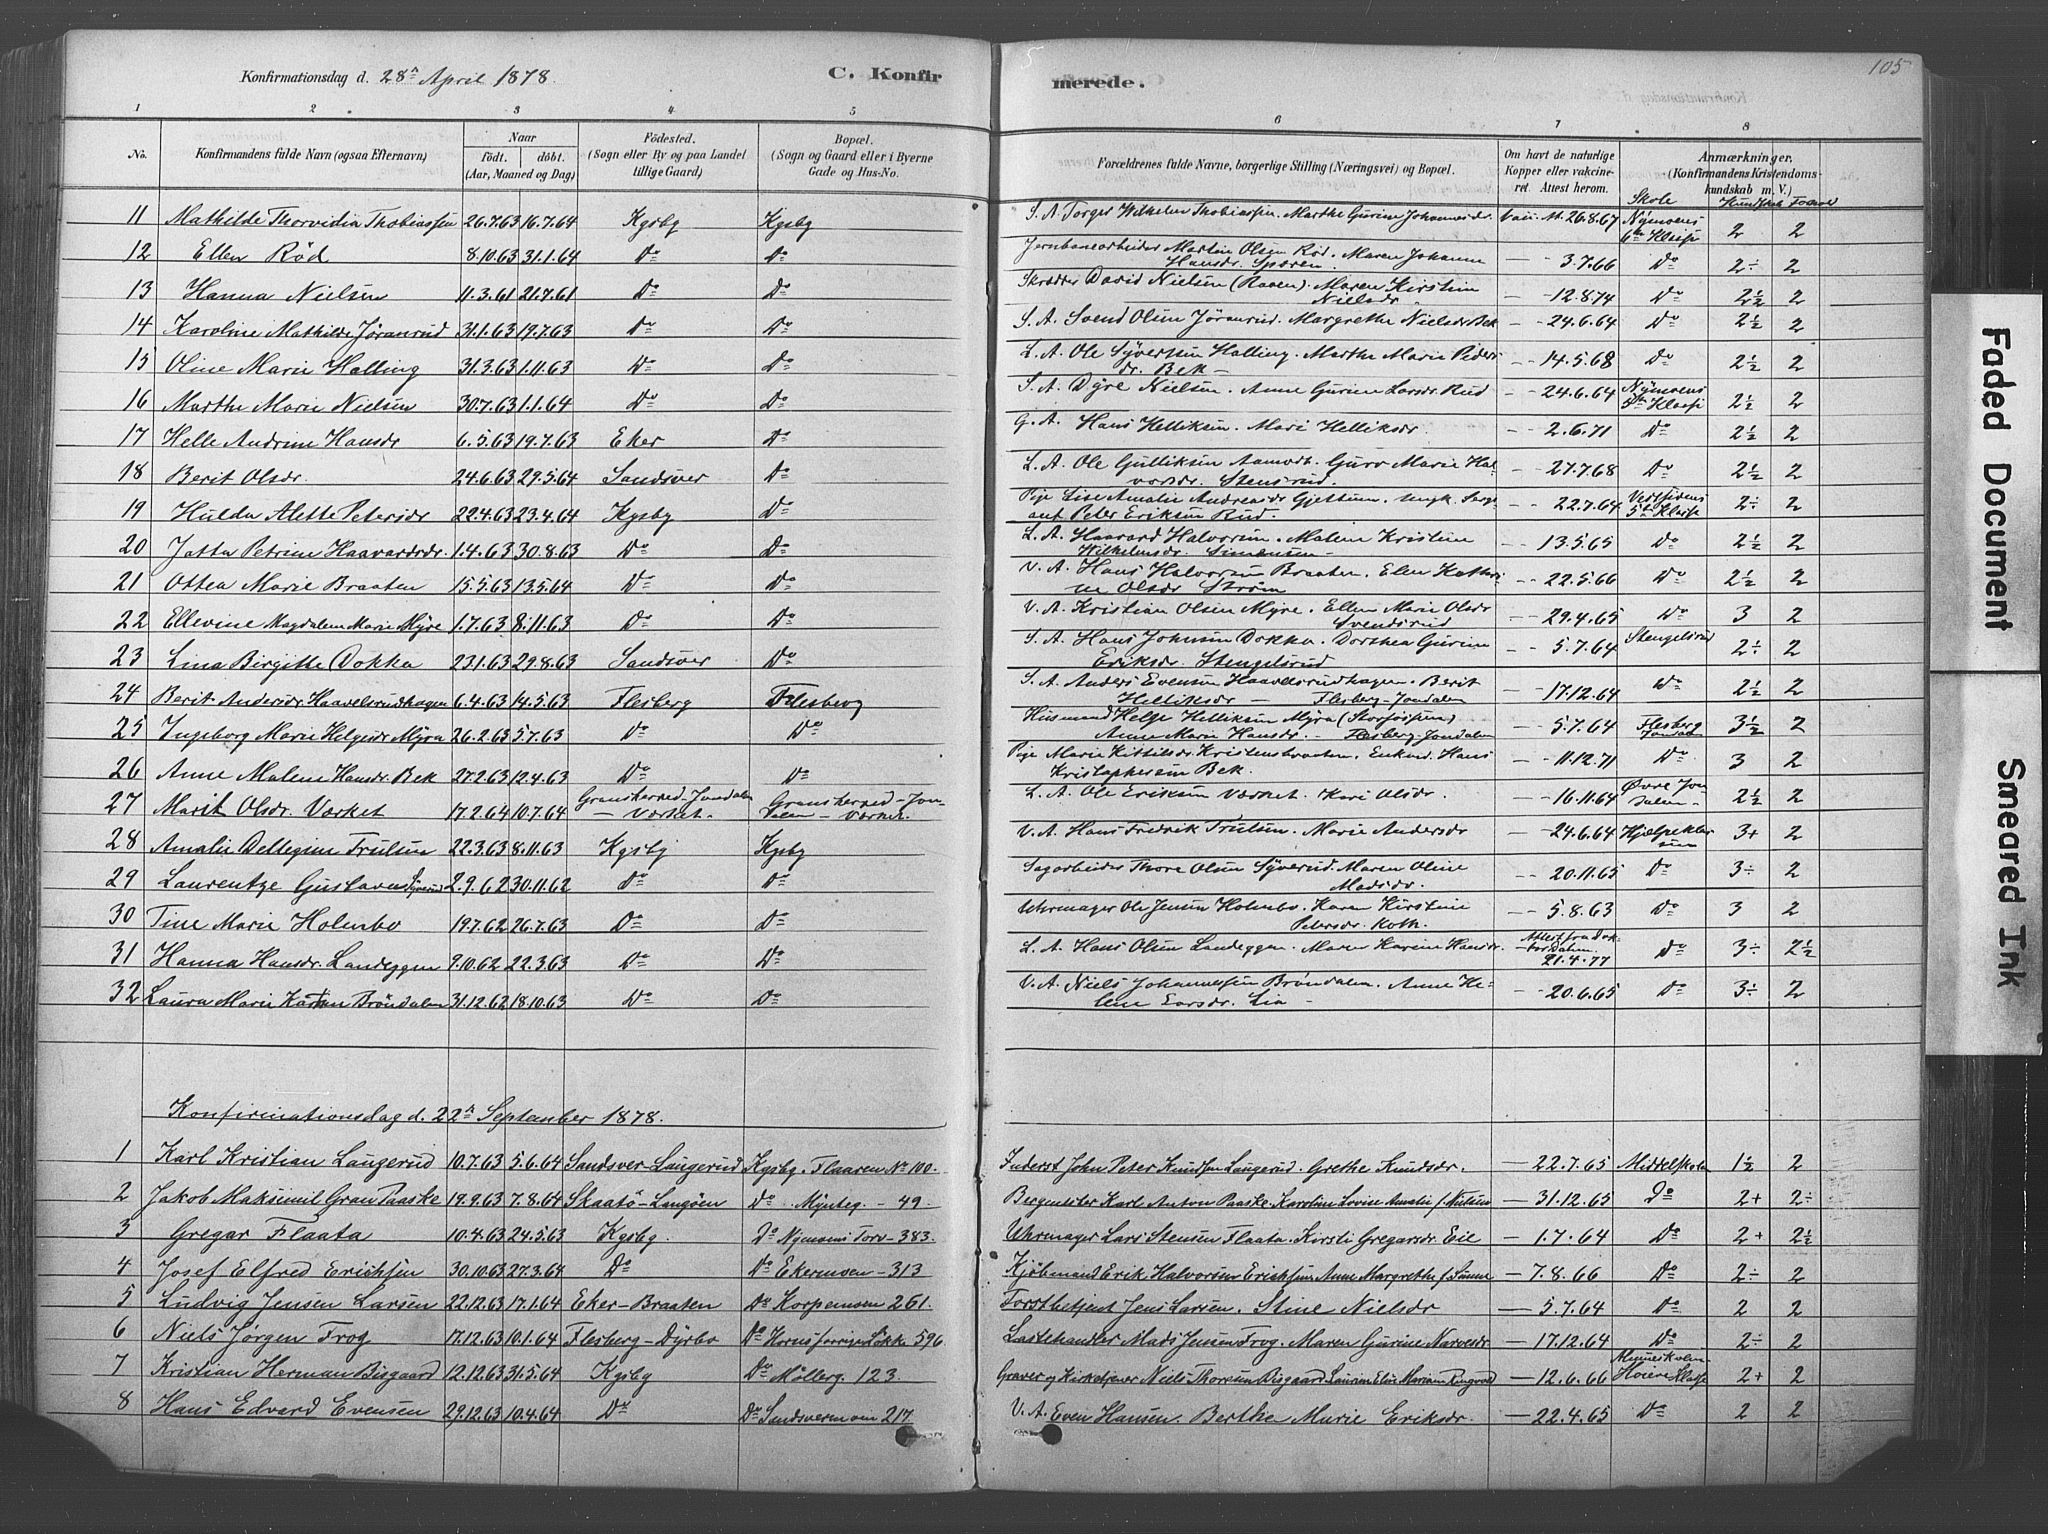 105
Konfirmationsdag d. 28de April 1878. C. Konfirmerede.
1 2 3 4 5 6 7 8
No. Konfirmandens fulde Navn (ogsaa Efternavn) Naar født. døbt. (Aar, Maaned og Dag) Födested. (Sogn eller By og paa Landet tillige Gaard) Bopæl. (Sogn og Gaard eller i Byerne Gade og Hus-No. Forældrenes fulde Navne, borgerlige Stilling (Næringsvei) og Bopæl. Om havt de naturlige Kopper eller vakcineret. Attest herom. Anmærkninger. (Konfirmandens Kristendomskundskab m. V.)
Skole Kundskab Forhold
11 Mathilde Thorvidia Thobiassen 26.7.63 16.7.64 Kgsbg Kgsbg S. A. Torger Wilhelm Thobiassen. Marthe Gurine Johannesdr. Vacc. At. 26.8.67 Nymoens 6te Klasse 2 2
12 Ellen Rød 8.10.63 31.1.64 Do Do Jernbanearbeider Martin Olsen Rød. Maren Johanne Hansdr. Spæren. — 3.7.66 Do 2÷ 2
13 Hanna Nielsen 11.3.61 21.7.61 Do Do Skrædder David Nielsen (Raaen). Maren Kirstine Nielsdr. — 12.8.74 Do 2½ 2
14 Karoline Mathilde Jøranrud 31.1.63 19.7.63 Do Do S. A. Svend Olsen Jøranrud. Margrethe Nielsdr. Bek — 24.6.64 Do 2½ 2
15 Oline Marie Halling 31.3.63 1.11.63 Do Do L. A. Ole Syvertsen Halling. Marthe Marie Pedersdr. Bek — 14.5.68 Do 2½ 2
16 Marthe Marie Nielsen 30.7.63 1.1.64 Do Do S. A. Dyre Nielsen. Anne Gurine Larsdr. Rud — 24.6.64 Nymoens 5te Klasse 2½ 2
17 Helle Andrine Hansdr 6.5.63 19.7.63 Eker Do G. A. Hans Helliksen. Mari Helliksdr. — 2.6.71 Do 2½ 2
18 Berit Olsdr. 24.6.63 29.5.64 Sandsver Do L. A. Ole Gulliksen Aamodt. Guro Marie Halvorsdr. Stensrud. — 27.7.68 Do 2½ 2
19 Hulda Alette Petersdr 22.4.63 23.4.64 Kgsbg Do Pige Lise Amalie Andreasdr Gjettum. ungk. Sergeant Peter Eriksen Rud. — 22.7.64 Vestsidens 5te Klasse 2÷ 2
20 Jatta Petrine Haavardsdr. 1.4.63 30.8.63 Do Do L. A. Haavard Halvorsen. Malene Kristine Wilhelmsdr. Simensen — 13.5.65 Do 2½ 2
21 Ottea Marie Braaten 15.5.63 13.5.64 Do Do V. A. Hans Halvorsen Braaten. Elen Kathrine Olsdr Strøm — 22.5.66 Do 2½ 2
22 Ellevine Magdalene Marie Myre 1.7.63 8.11.63 Do Do V. A. Kristian Olsen Myre. Ellen Marie Olsdr Svendsrud — 29.4.65 Do 3 2
23 Lina Birgitte Dokka 23.1.63 29.8.63 Sandsver Do S. A. Hans Johnsen Dokka. Dorthea Gurine Eriksdr. Stengelsrud — 5.7.64 Stengelsrud 2÷ 2
24 Berit Andersdr Haavelsrudhagen 6.4.63 14.5.63 Flesberg Flesberg S. A. Anders Evensen Haavelsrudhagen. Berit Helliksdr — Flesberg-Jondalen — 17.12.64 Do 2½ 2
25 Ingeborg Marie Helgesdr Myra 26.2.63 5.7.63 Do Do Husmand Helge Helliksen Myra (Storfossen) Anne Marie Hansdr. — Flesberg-Jondalen — 5.7.64 Flesberg Jondal 3½ 2
26 Anne Malene Hansdr. Bek 27.2.63 12.4.63 Do Do Pige Marie Kittilsdr. Kristensbraaten. Enkemd. Hans Kristophersen Bek. — 11.12.71 Do 3 2
27 Marit Olsdr. Værket 17.2.64 10.7.64 Gransherred-Jondalen — Værket. Gransherred-Jondalen — Værket. L. A. Ole Eriksen Værket. Kari Olsdr. — 16.11.64 Øvre Jondalen 2½ 2
28 Amalie Pellegine Trulsen 22.3.63 8.11.63 Kgsbg Kgsbg V. A. Hans Fredrik Trulsen. Marie Andersdr — 24.6.64 Hjælpeklassen 3+ 2
29 Laurentze Gustava Syverud 2.9.62 30.11.62 Do Do Sagarbeider Thore Olsen Syverud. Maren Oline Madsdr. — 20.11.65 Do 3÷ 2
30 Tine Marie Holmbo 19.7.62 26.7.63 Do Do Uhrmager Ole Jensen Holmbo. Karen Kirstine Petersdr. Koth. — 5.8.63 Do 3 2
31 Hanna Hansdr. Landeggen 9.10.62 22.3.63 Do Do L. A. Hans Olsen Landeggen. Maren Karine Hansdr. Attest fra Doktor Dalen 21.4.77 Do 3÷ 2½
32 Laura Marie Karen Brøndalen 31.12.62 18.10.63 Do Do V. A. Niels Johannessen Brøndalen. Anne Helene Larsdr. Lia — 20.6.65 Do 3÷ 2
Konfirmationsdag d. 22de September 1878.
1 Karl Kristian Laugerud 10.7.63 5.6.64 Sandsver-Laugerud Kgsbg. Flaaren No 100. Inderst John Peter Knudsen Laugerud. Grethe Knudsdr. — 22.7.65 Middelskolen 1½ 2
2 Jakob Maksimil Gran Paaske 19.9.63 7.8.64 Skaatø-Langøen Do Myntg. — 49. Bergmester Karl Anton Paaske. Karoline Lovise Amalie f. Nielsen — 31.12.65 Do 2+ 2÷
3 Gregar Flaata 10.4.63 24.5.63 Kgsbg. Do Nymoens Torv — 383. Uhrmager Lars Stensen Flaata. Kirsti Gregarsdr. Eie — 1.7.64 Do 2+ 2½
4 Josef Elfred Erichsen 30.10.63 27.3.64 Do Do Ekermoen — 313 Kjøbmand Erik Halvorsen Erichsen. Anne Margrethe f. — 7.8.66 Do 2÷ 2
5 Ludvig Jensen Larsen 22.12.63 17.1.64 Eker-Braaten Do Korpemoen 261. Forstbetjent Jens Larsen. Stine Nielsdr — 5.7.64 Do 2 2
6 Niels Jørgen Frog 17.12.63 10.1.64 Flesberg-Dyrbo Do 596 Lastehandler Mads Jensen Frog. Maren Gurine Narvesdr. — 17.12.64 Do 2÷ 2
7 Kristian Herman Bisgaard 12.12.63 31.5.64 Kgsbg Do Møllerg. 123. Graver og Kirketjener Niels Thorsen Bisgaard — 12.6.66 Almueskolens Høiere Klasse 2+ 2
8 Hans Edvard Evensen 27.12.63 10.4.64 Do Do Sandsvermoen 217. V. A. Even Hansen. Berthe Marie Eriksdr. — 22.4.65 Do 2 2
Faded Document
Smeared Ink